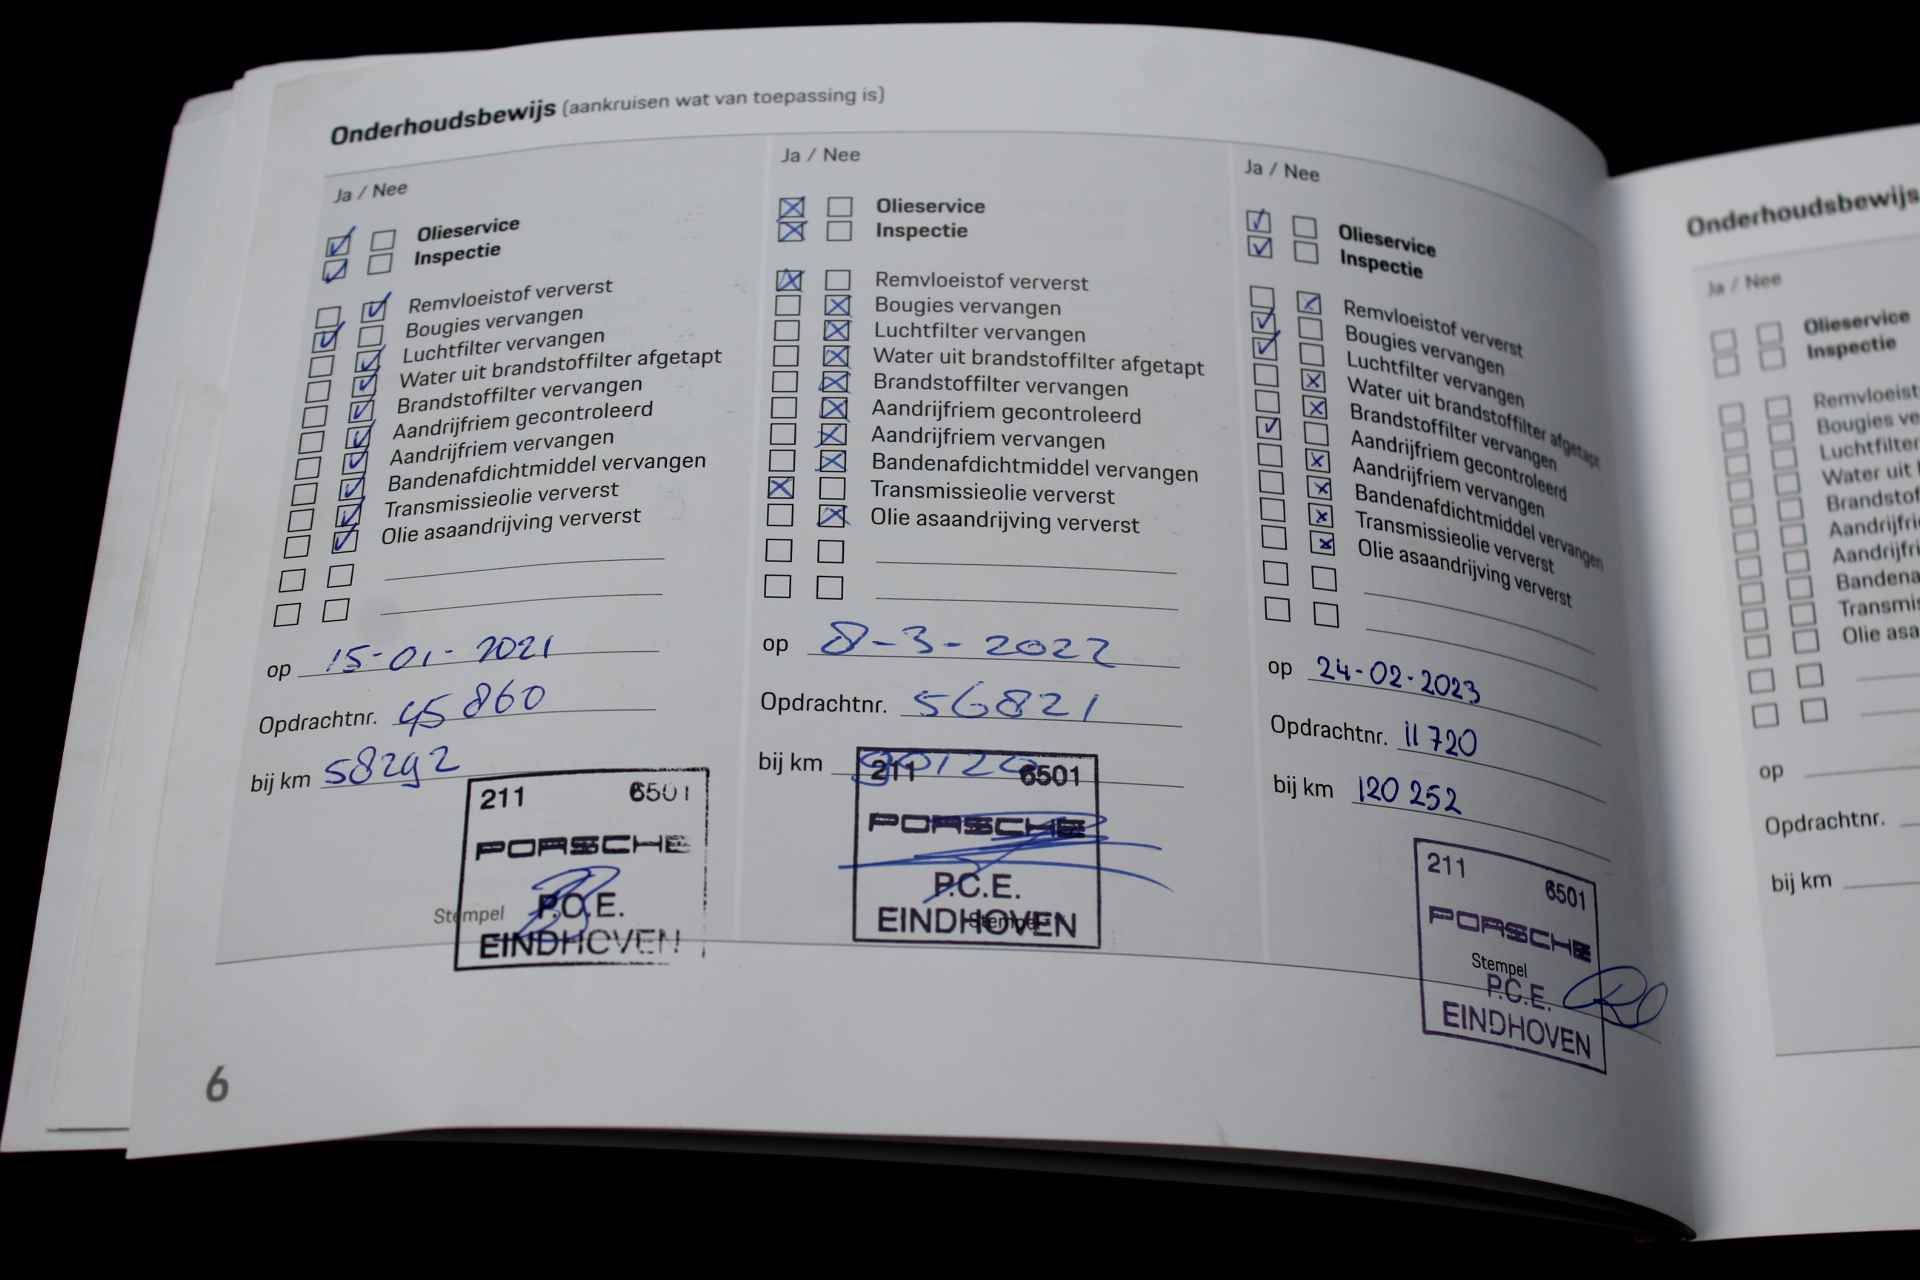 Onderhoudsbewijs (aankruisen wat van toepassing is)
Ja / Nee
Olieservice
Inspectie
Remvloeistof ververst
Bougies vervangen
Luchtfilter vervangen
Water uit brandstoffilter afgetapt
Brandstoffilter vervangen
Aandrijfriem gecontroleerd
Aandrijfriem vervangen
Bandenafdichtmiddel vervangen
Transmissieolie ververst
Olie asaandrijving ververst
op 15-01-2021
Opdrachtnr. 45860
bij km 58292
211 6501
PORSCHE
P.C.E.
Stempel
EINDHOVEN
Ja / Nee
Olieservice
Inspectie
Remvloeistof ververst
Bougies vervangen
Luchtfilter vervangen
Water uit brandstoffilter afgetapt
Brandstoffilter vervangen
Aandrijfriem gecontroleerd
Aandrijfriem vervangen
Bandenafdichtmiddel vervangen
Transmissieolie ververst
Olie asaandrijving ververst
op 8-3-2022
Opdrachtnr. 56821
bij km
211 6501
PORSCHE
P.C.E.
Stempel
EINDHOVEN
Ja / Nee
Olieservice
Inspectie
Remvloeistof ververst
Bougies vervangen
Luchtfilter vervangen
Water uit brandstoffilter afgetapt
Brandstoffilter vervangen
Aandrijfriem gecontroleerd
Aandrijfriem vervangen
Bandenafdichtmiddel vervangen
Transmissieolie ververst
Olie asaandrijving ververst
op 24-02-2023
Opdrachtnr. 11720
bij km 120 252
211 6501
PORSCHE
Stempel
P.C.E.
EINDHOVEN
6
Onderhoudsbewijs
Ja / Nee
Olieservice
Inspectie
Remvloeist
Bougies ve
Luchtfilter
Water uit
Brandstof
Aandrijfri
Aandrijfri
Bandena
Transmis
Olie asa
op
Opdrachtnr.
bij km